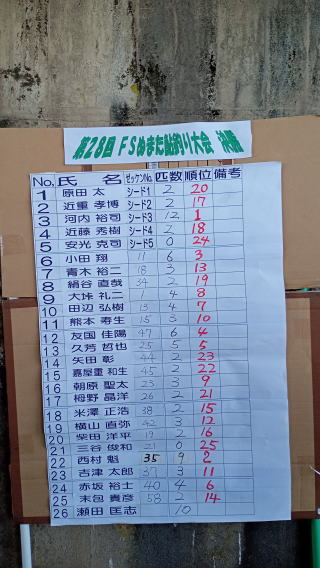 第28回 FSぬまた鮎釣り大会 決勝
No. 氏 名 ゼッケンNo. 匹数 順位 備考
1 原田 太 シード1 2 20
2 近重 孝博 シード2 2 17
3 河内 裕司 シード3 12 1
4 近藤 秀樹 シード4 2 18
5 安光 克司 シード5 0 24
6 小田 翔 11 6 3
7 青木 裕二 18 3 13
8 絹谷 直哉 34 2 19
9 大垰 礼二 1 4 8
10 田辺 弘樹 13 4 7
11 熊本 寿生 15 3 10
12 友国 佳陽 47 6 4
13 久芳 哲也 25 5 5
14 矢田 彰 44 2 23
15 嘉屋重 和生 45 2 22
16 朝原 聖太 23 3 9
17 栂野 晶洋 26 2 21
18 米澤 正浩 38 2 15
19 横山 直弥 42 3 12
20 柴田 洋平 19 2 16
21 三谷 俊和 21 0 25
22 西村 魁 35 9 2
23 吉津 太郎 37 3 11
24 赤坂 裕士 40 4 6
25 末包 貴彦 58 2 14
26 瀬田 匡志 10